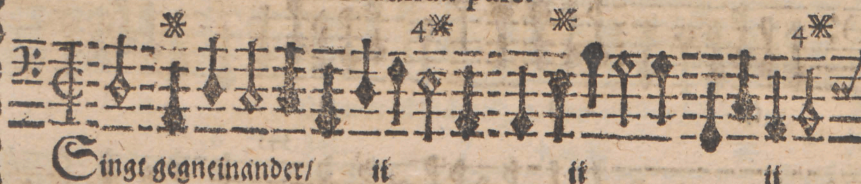 4 4
Singt gegneinander/ ij ij ij